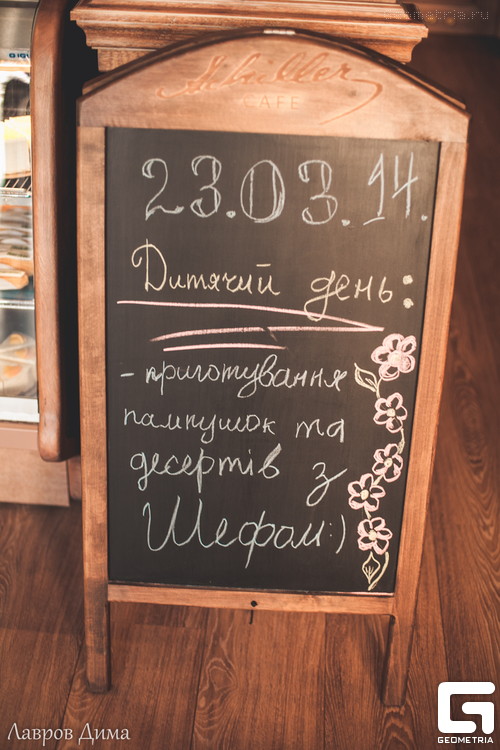 geometria.ru
Schiller
CAFE
23.03.14.
Дитячий день:
- приготування
пампушок та
десертів з
Шефом:)
Лавров Дима
G
GEOMETRIA